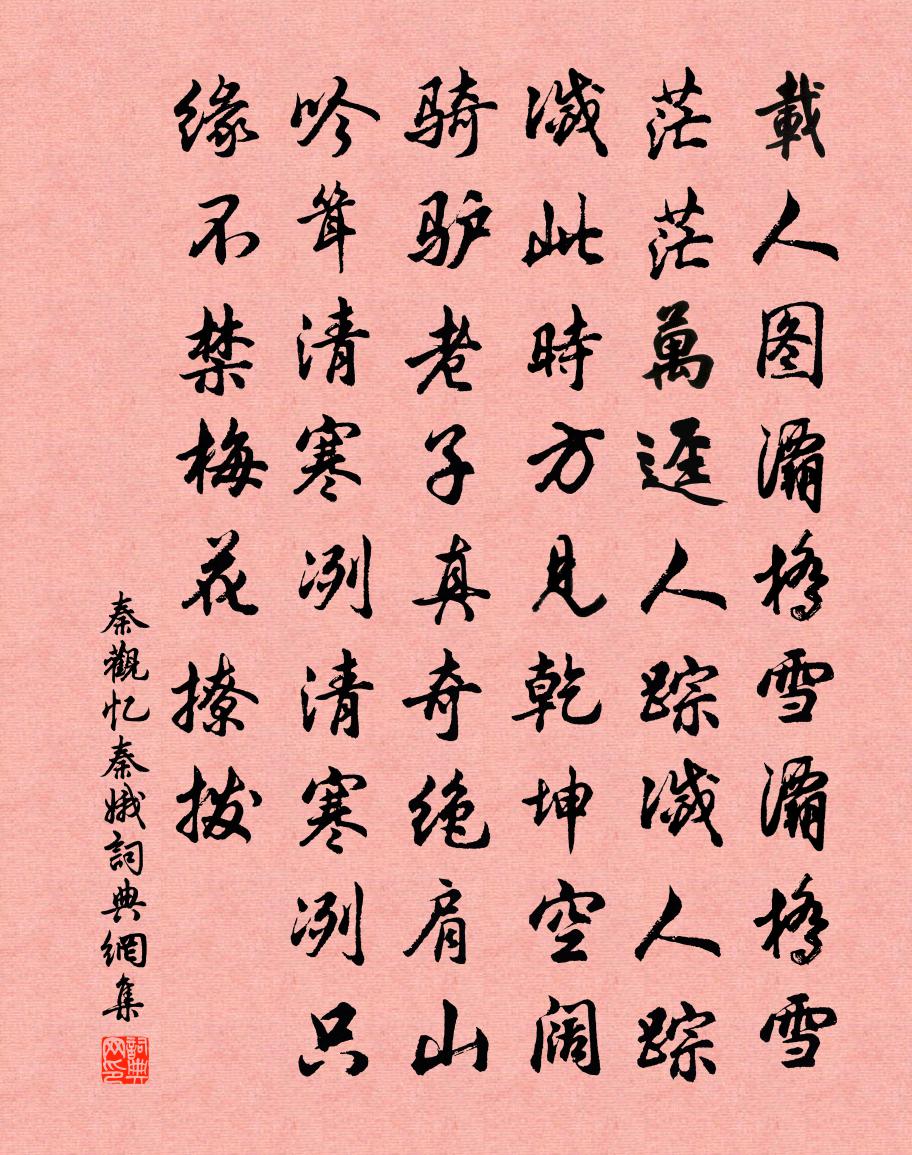 載人图灞橋雪灞橋雪
茫茫萬逕人踪滅人踪
滅此時方見乾坤空阔
骑驴老子真奇绝肩山
吟耸清寒冽清寒冽只
缘不禁梅花撩拨
秦觀忆秦娥詞典網集
詞典网印